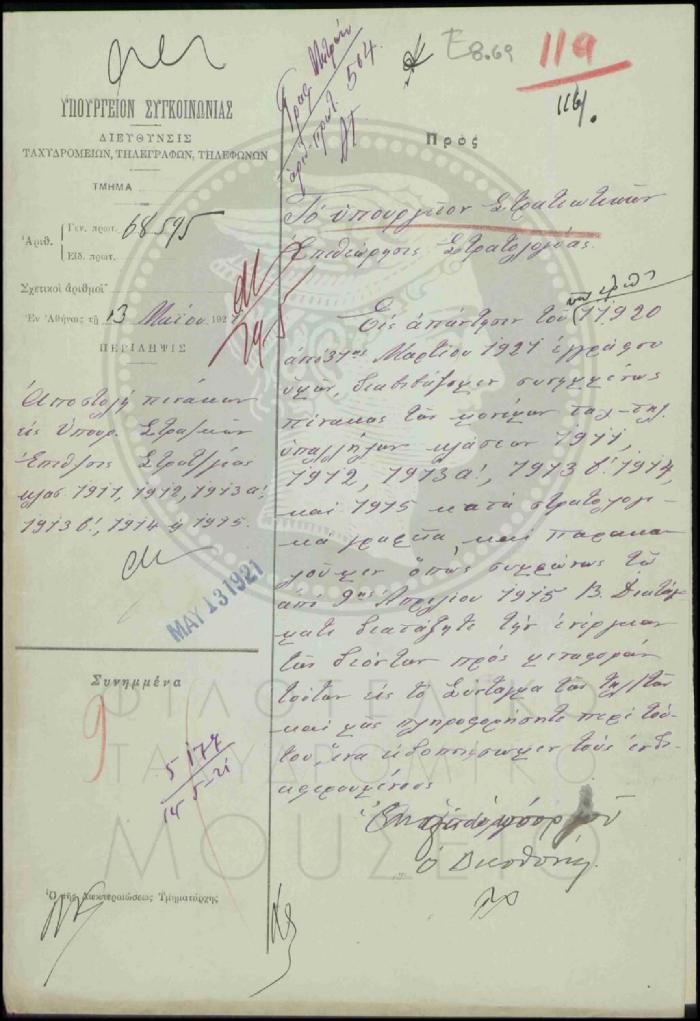 Ε8.69
119
116/.
Γραφ. Μητρών
ἀριθ. πρωτ. 504
ΥΠΟΥΡΓΕΙΟΝ ΣΥΓΚΟΙΝΩΝΙΑΣ
ΔΙΕΥΘΥΝΣΙΣ
ΤΑΧΥΔΡΟΜΕΙΩΝ, ΤΗΛΕΓΡΑΦΩΝ, ΤΗΛΕΦΩΝΩΝ
ΤΜΗΜΑ
Ἀριθ.
Γεν. πρωτ. 68595
Εἰδ. πρωτ.
Σχετικοὶ ἀριθμοὶ
Ἐν Ἀθήναις τῇ 13 Μαΐου 1921
ΠΕΡΙΛΗΨΙΣ
Ἀποστολὴ πινάκων
εἰς Ὑπουρ. Στρατ/κῶν
Ἐπιθ/σις Στρατ/γίας
κλάσ 1911, 1912, 1913 α',
1913 β', 1914 ϗ 1915.
MAY 13 1921
Συνημμένα
9
5174
14-5-21
Ὁ τῆς Διεκπεραιώσεως Τμηματάρχης
Πρὸς
Τὸ ὑπουργεῖον Στρατιωτικῶν
Ἐπιθεώρησις Στρατολογίας.
Εἰς ἀπάντησιν τοῦ 11920
ἀπὸ 31ης Μαρτίου 1921 ἐγγράφου
ὑμῶν, διαβιβάζομεν συνημμένως
πίνακας τῶν μονίμων ταχ-τηλ
ὑπαλλήλων κλάσεων 1911,
1912, 1913 α', 1913 β' 1914,
καὶ 1915 κατὰ στρατολογι-
κὰ γραφεῖα, καὶ παρακα
λοῦμεν ὅπως συμφώνως τῷ
ἀπὸ 9ης Ἀπριλίου 1915 Β. Διατάγ
ματι διατάξητε τὴν ἐνέργειαν
τῶν δεόντων πρὸς μεταφορὰν
τούτων εἰς τὸ Σύνταγμα τῶν Τηλ/τῶν
καὶ μας πληροφορήσητε περὶ τού-
του, ἵνα εἰδοποιήσωμεν τοὺς ἐνδι-
αφερομένους
Ἐντολῇ τοῦ ὑπουργοῦ
ὁ Διευθυντής
ΦΙΛΟΤΕΛΙΚΟ
ΤΑΧΥΔΡΟΜΙΚΟ
ΜΟΥΣΕΙΟ